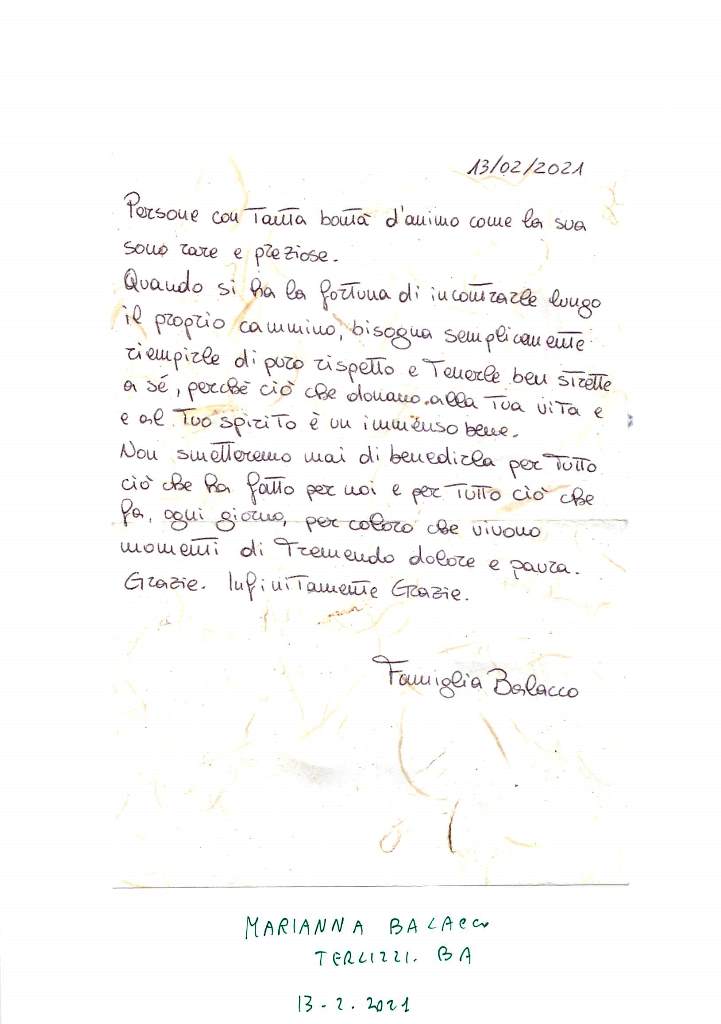 13/02/2021
Persone con tanta bontà d'animo come la sua
sono rare e preziose.
Quando si ha la fortuna di incontrarle lungo
il proprio cammino, bisogna semplicemente
riempirle di puro rispetto e tenerle ben strette
a sé, perché ciò che donano alla tua vita e
e al tuo spirito è un immenso bene.
Non smetteremo mai di benedirla per tutto
ciò che ha fatto per noi e per tutto ciò che
fa, ogni giorno, per coloro che vivono
momenti di tremendo dolore e paura.
Grazie. Infinitamente Grazie.
Famiglia Balacco
MARIANNA BALACCO
TERLIZZI. BA
13-2.2021